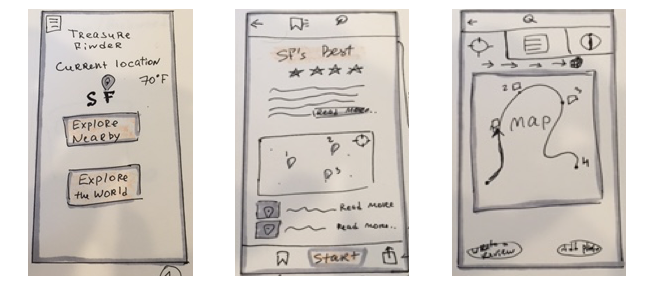 Treasure
Finder
Current location
70°F
SF
Explore
Nearby
Explore
the World
SF's Best
Read more..
1
2
3
Read more
Read more..
Start
2
3
Map
4
write a
Review